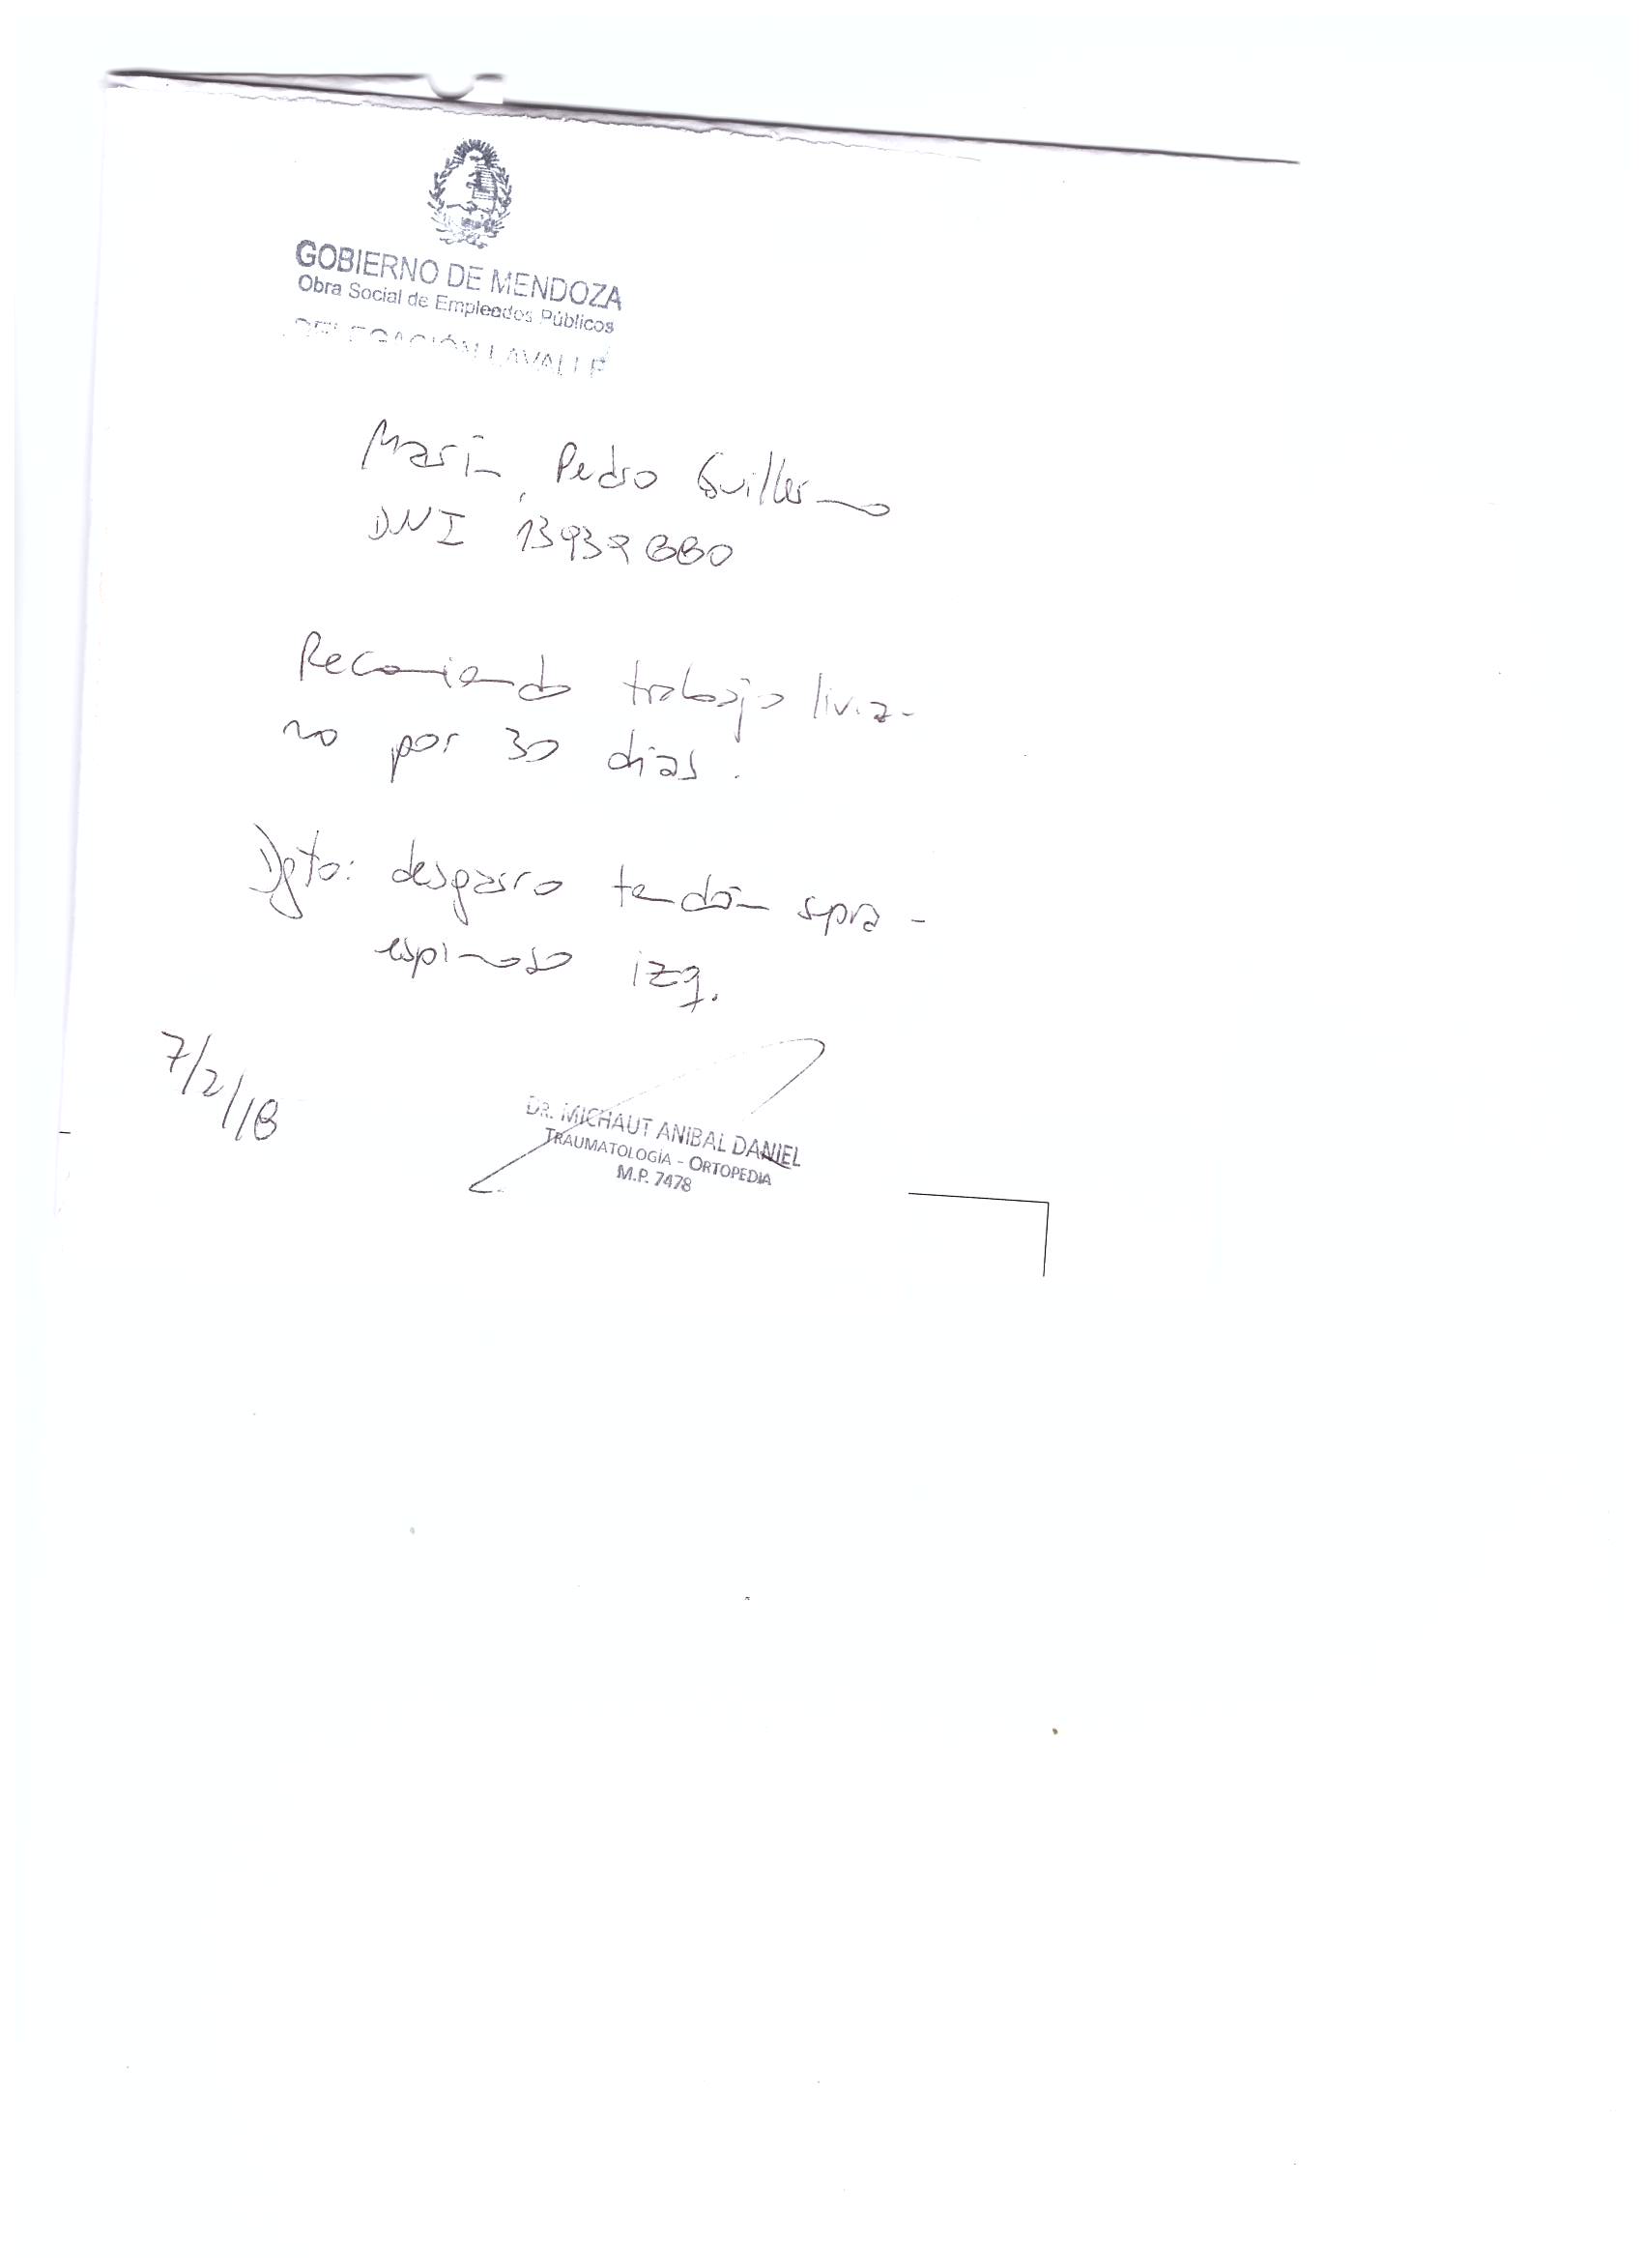 GOBIERNO DE MENDOZA
Obra Social de Empleados Públicos
DELEGACIÓN LAVALLE
Marin, Pedro Guillermo
DNI 13939880
Recomiendo trabajo livia-
no por 30 dias.
Dgto: desgarro tendón supra-
espinoso izq.
7/2/18
DR. MICHAUT ANIBAL DANIEL
TRAUMATOLOGÍA - ORTOPEDIA
M.P. 7478